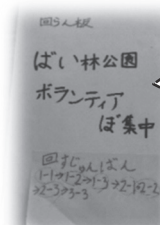 回らん板
ばい林公園
ボランティア
ぼ集中
回すじゅんばん
1-1→1-2→1-3→2-1→2-2
→2-3→3-3